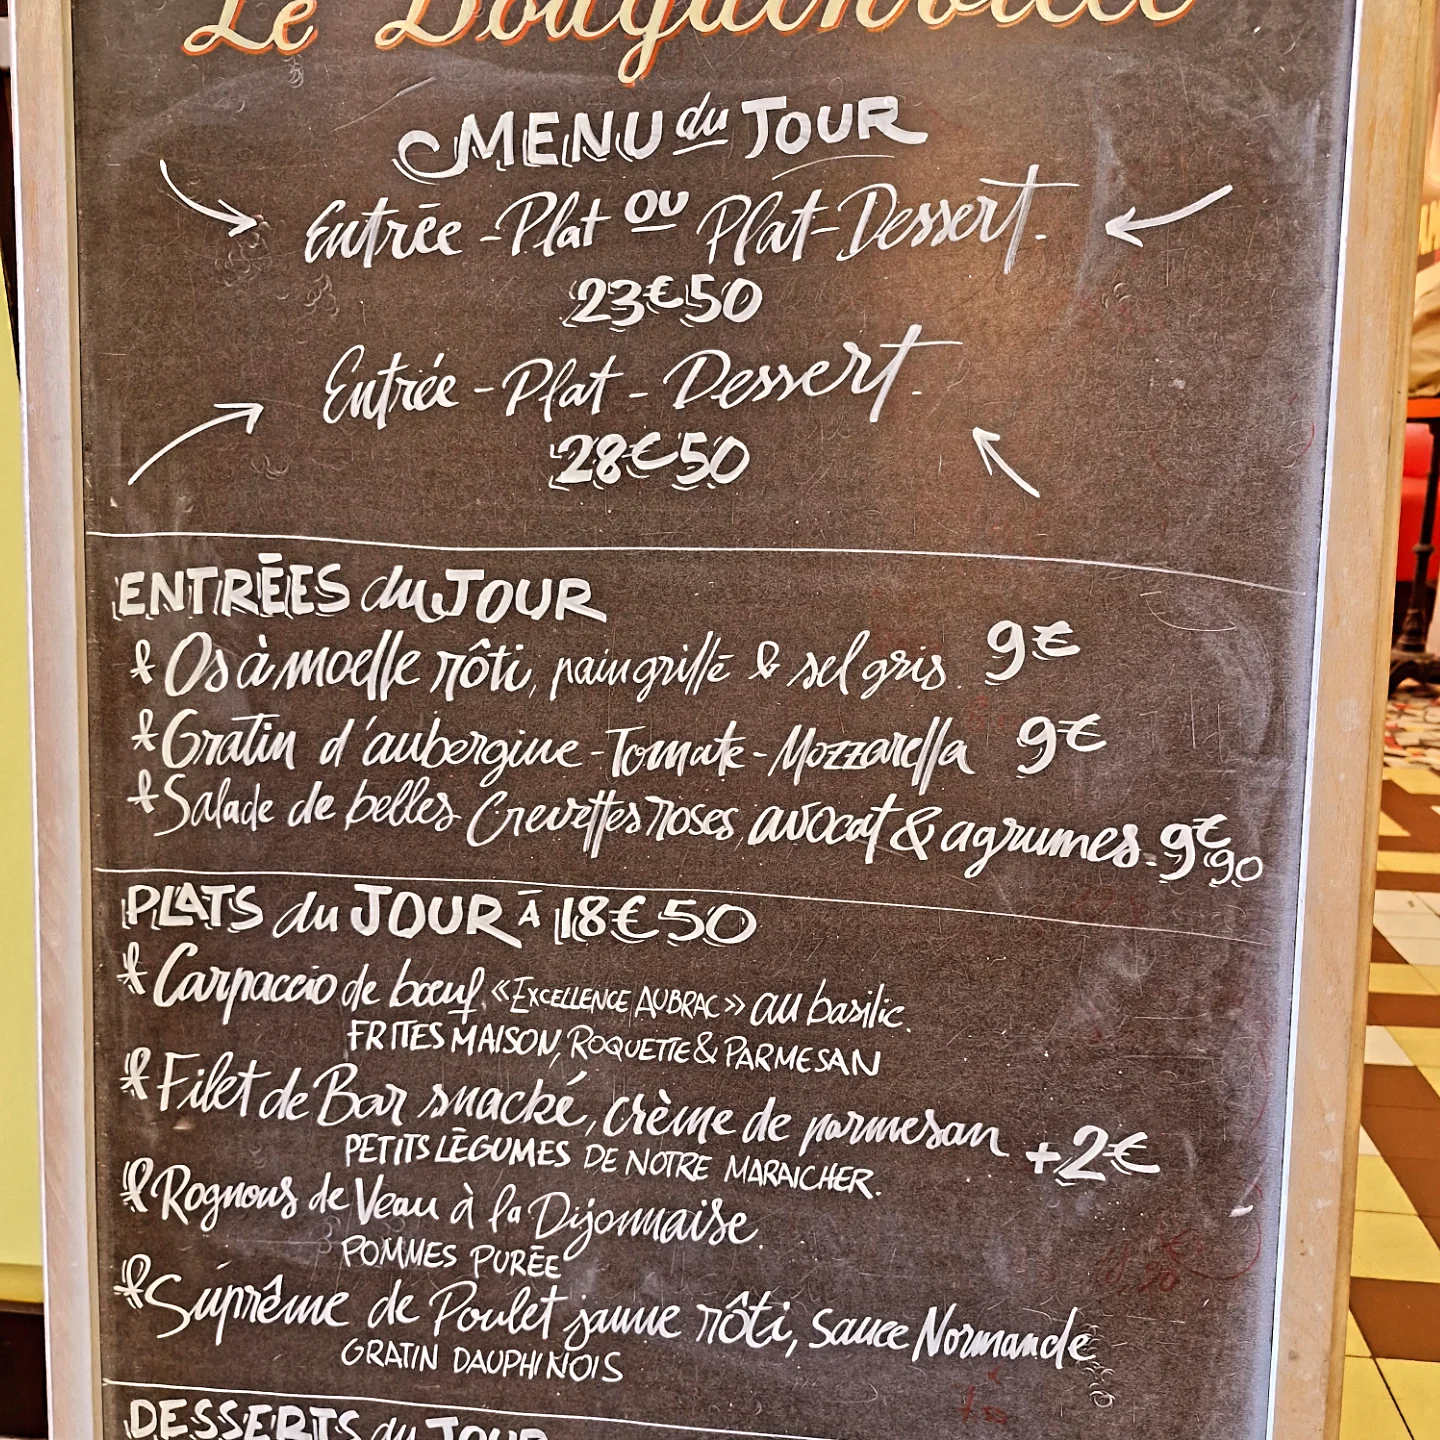 Le Bougainville
MENU du JOUR
Entrée - Plat OU Plat - Dessert.
23€50
Entrée - Plat - Dessert.
28€50
ENTRÉES du JOUR
Os à moelle rôti, pain grillé & sel gris. 9€
Gratin d'aubergine - Tomate - Mozzarella 9€
Salade de belles Crevettes roses, avocat & agrumes. 9€90
PLATS du JOUR À 18€50
Carpaccio de bœuf «EXCELLENCE AUBRAC» au basilic.
FRITES MAISON, ROQUETTE & PARMESAN
Filet de Bar snacké, crème de parmesan +2€
PETITS LÉGUMES DE NOTRE MARAICHER.
Rognons de Veau à la Dijonnaise.
POMMES PURÉE
Suprême de Poulet jaune rôti, sauce Normande
GRATIN DAUPHINOIS
DESSERTS du JOUR